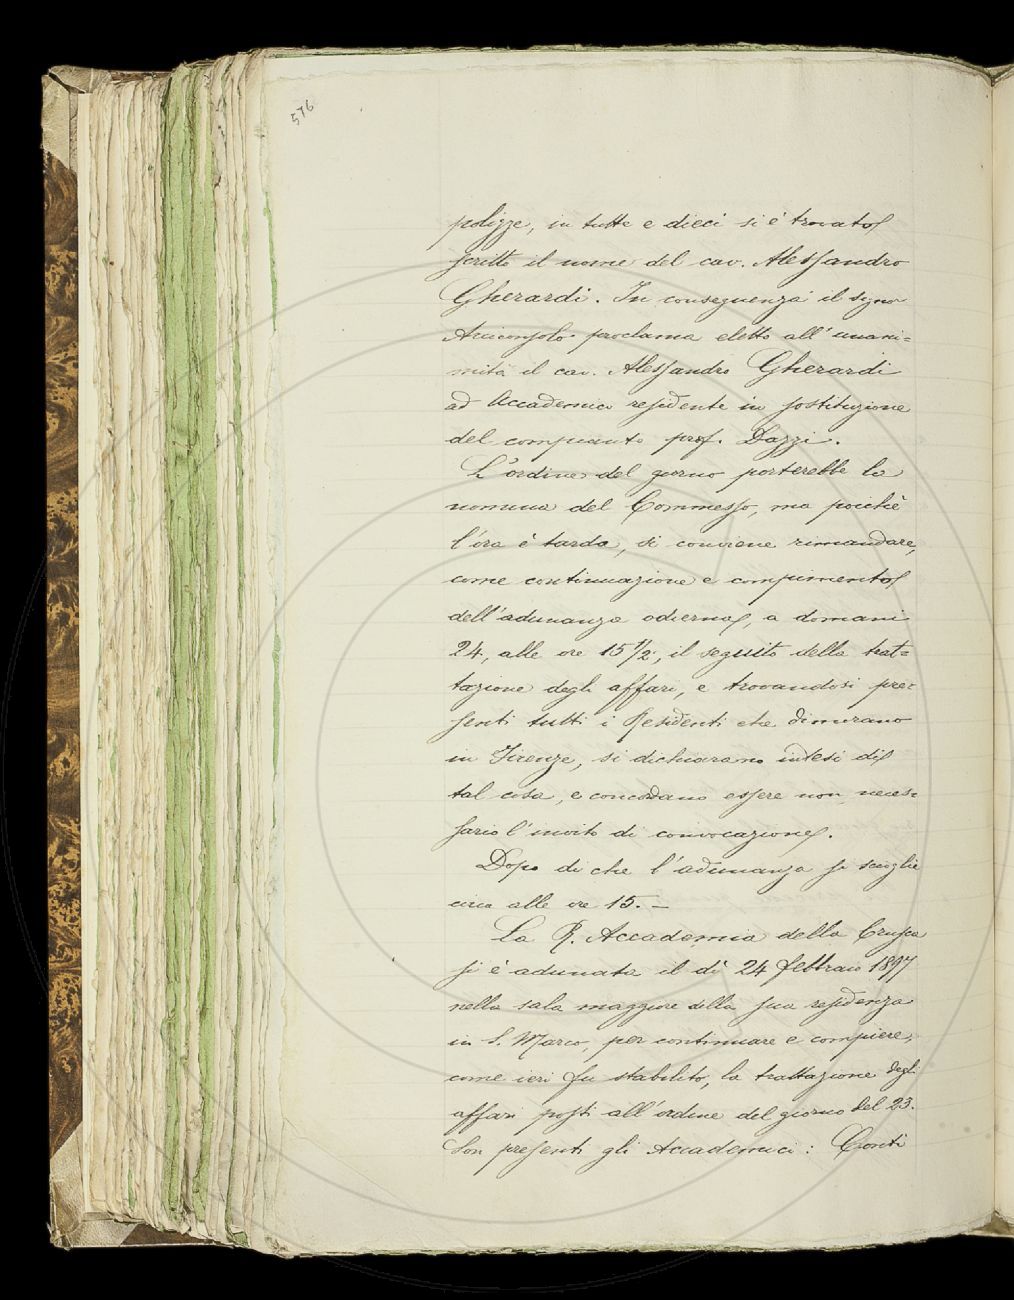 576
polizze, in tutte e dieci si è trovato
scritto il nome del cav. Alessandro
Gherardi. In conseguenza il signor
Arciconsolo proclama eletto all'unani=
mità il cav. Alessandro Gherardi
ad Accademico residente in sostituzione
del compianto prof. Dazzi.
L'ordine del giorno porterebbe la
nomina del Commesso, ma poichè
l'ora è tarda, si conviene rimandare,
come continuazione e compimento
dell'adunanza odierna, a domani
24, alle ore 15 1/2, il seguito della trat=
tazione degli affari, e trovandosi pre=
senti tutti i Residenti che dimorano
in Firenze, si dichiarano intesi di
tal cosa, e concordano essere non neces=
sario l'invito di convocazione.
Dopo di che l'adunanza si scioglie
circa alle ore 15. —
La R. Accademia della Crusca
si è adunata il dì 24 febbraio 1897
nella sala maggiore della sua residenza
in S. Marco, per continuare e compiere,
come ieri fu stabilito, la trattazione degli
affari posti all'ordine del giorno del 23.
Son presenti gli Accademici: Conti